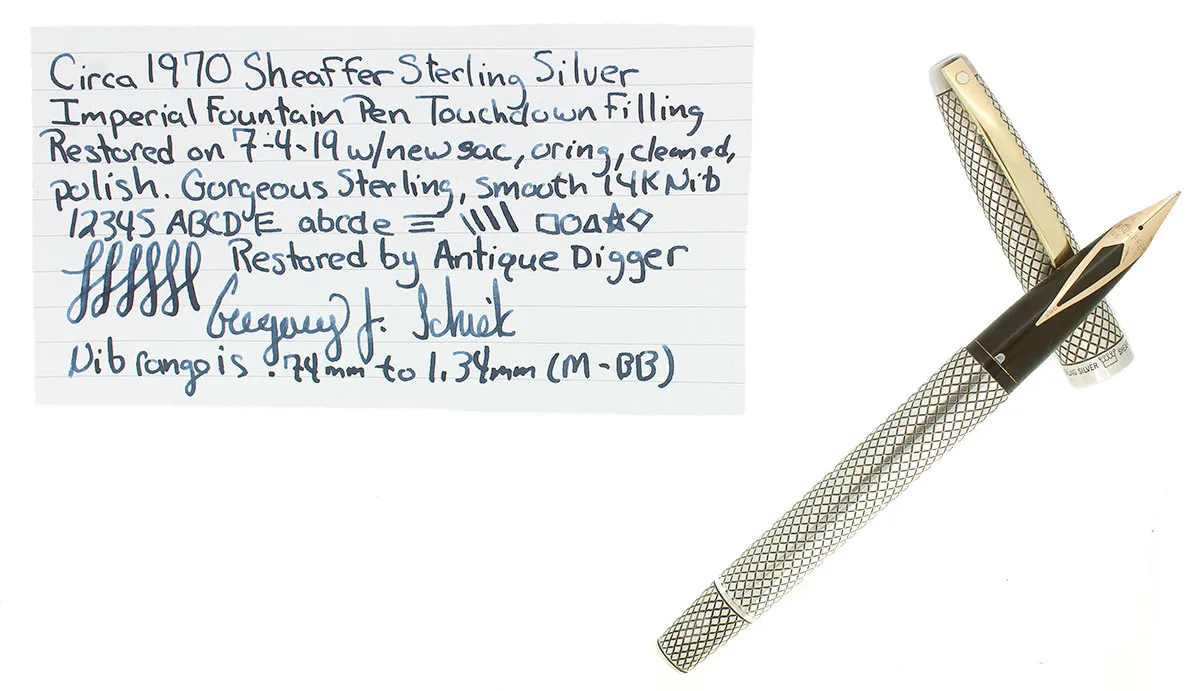 Circa 1970 Sheaffer Sterling Silver
Imperial Fountain Pen Touchdown Filling
Restored on 7-4-19 w/new sac, oring, cleaned,
polish. Gorgeous Sterling, smooth 14K Nib
12345 ABCDE abcde
Restored by Antique Digger
Gregory J.
Nib range is .74mm to 1.34mm (M-BB)
SILVER